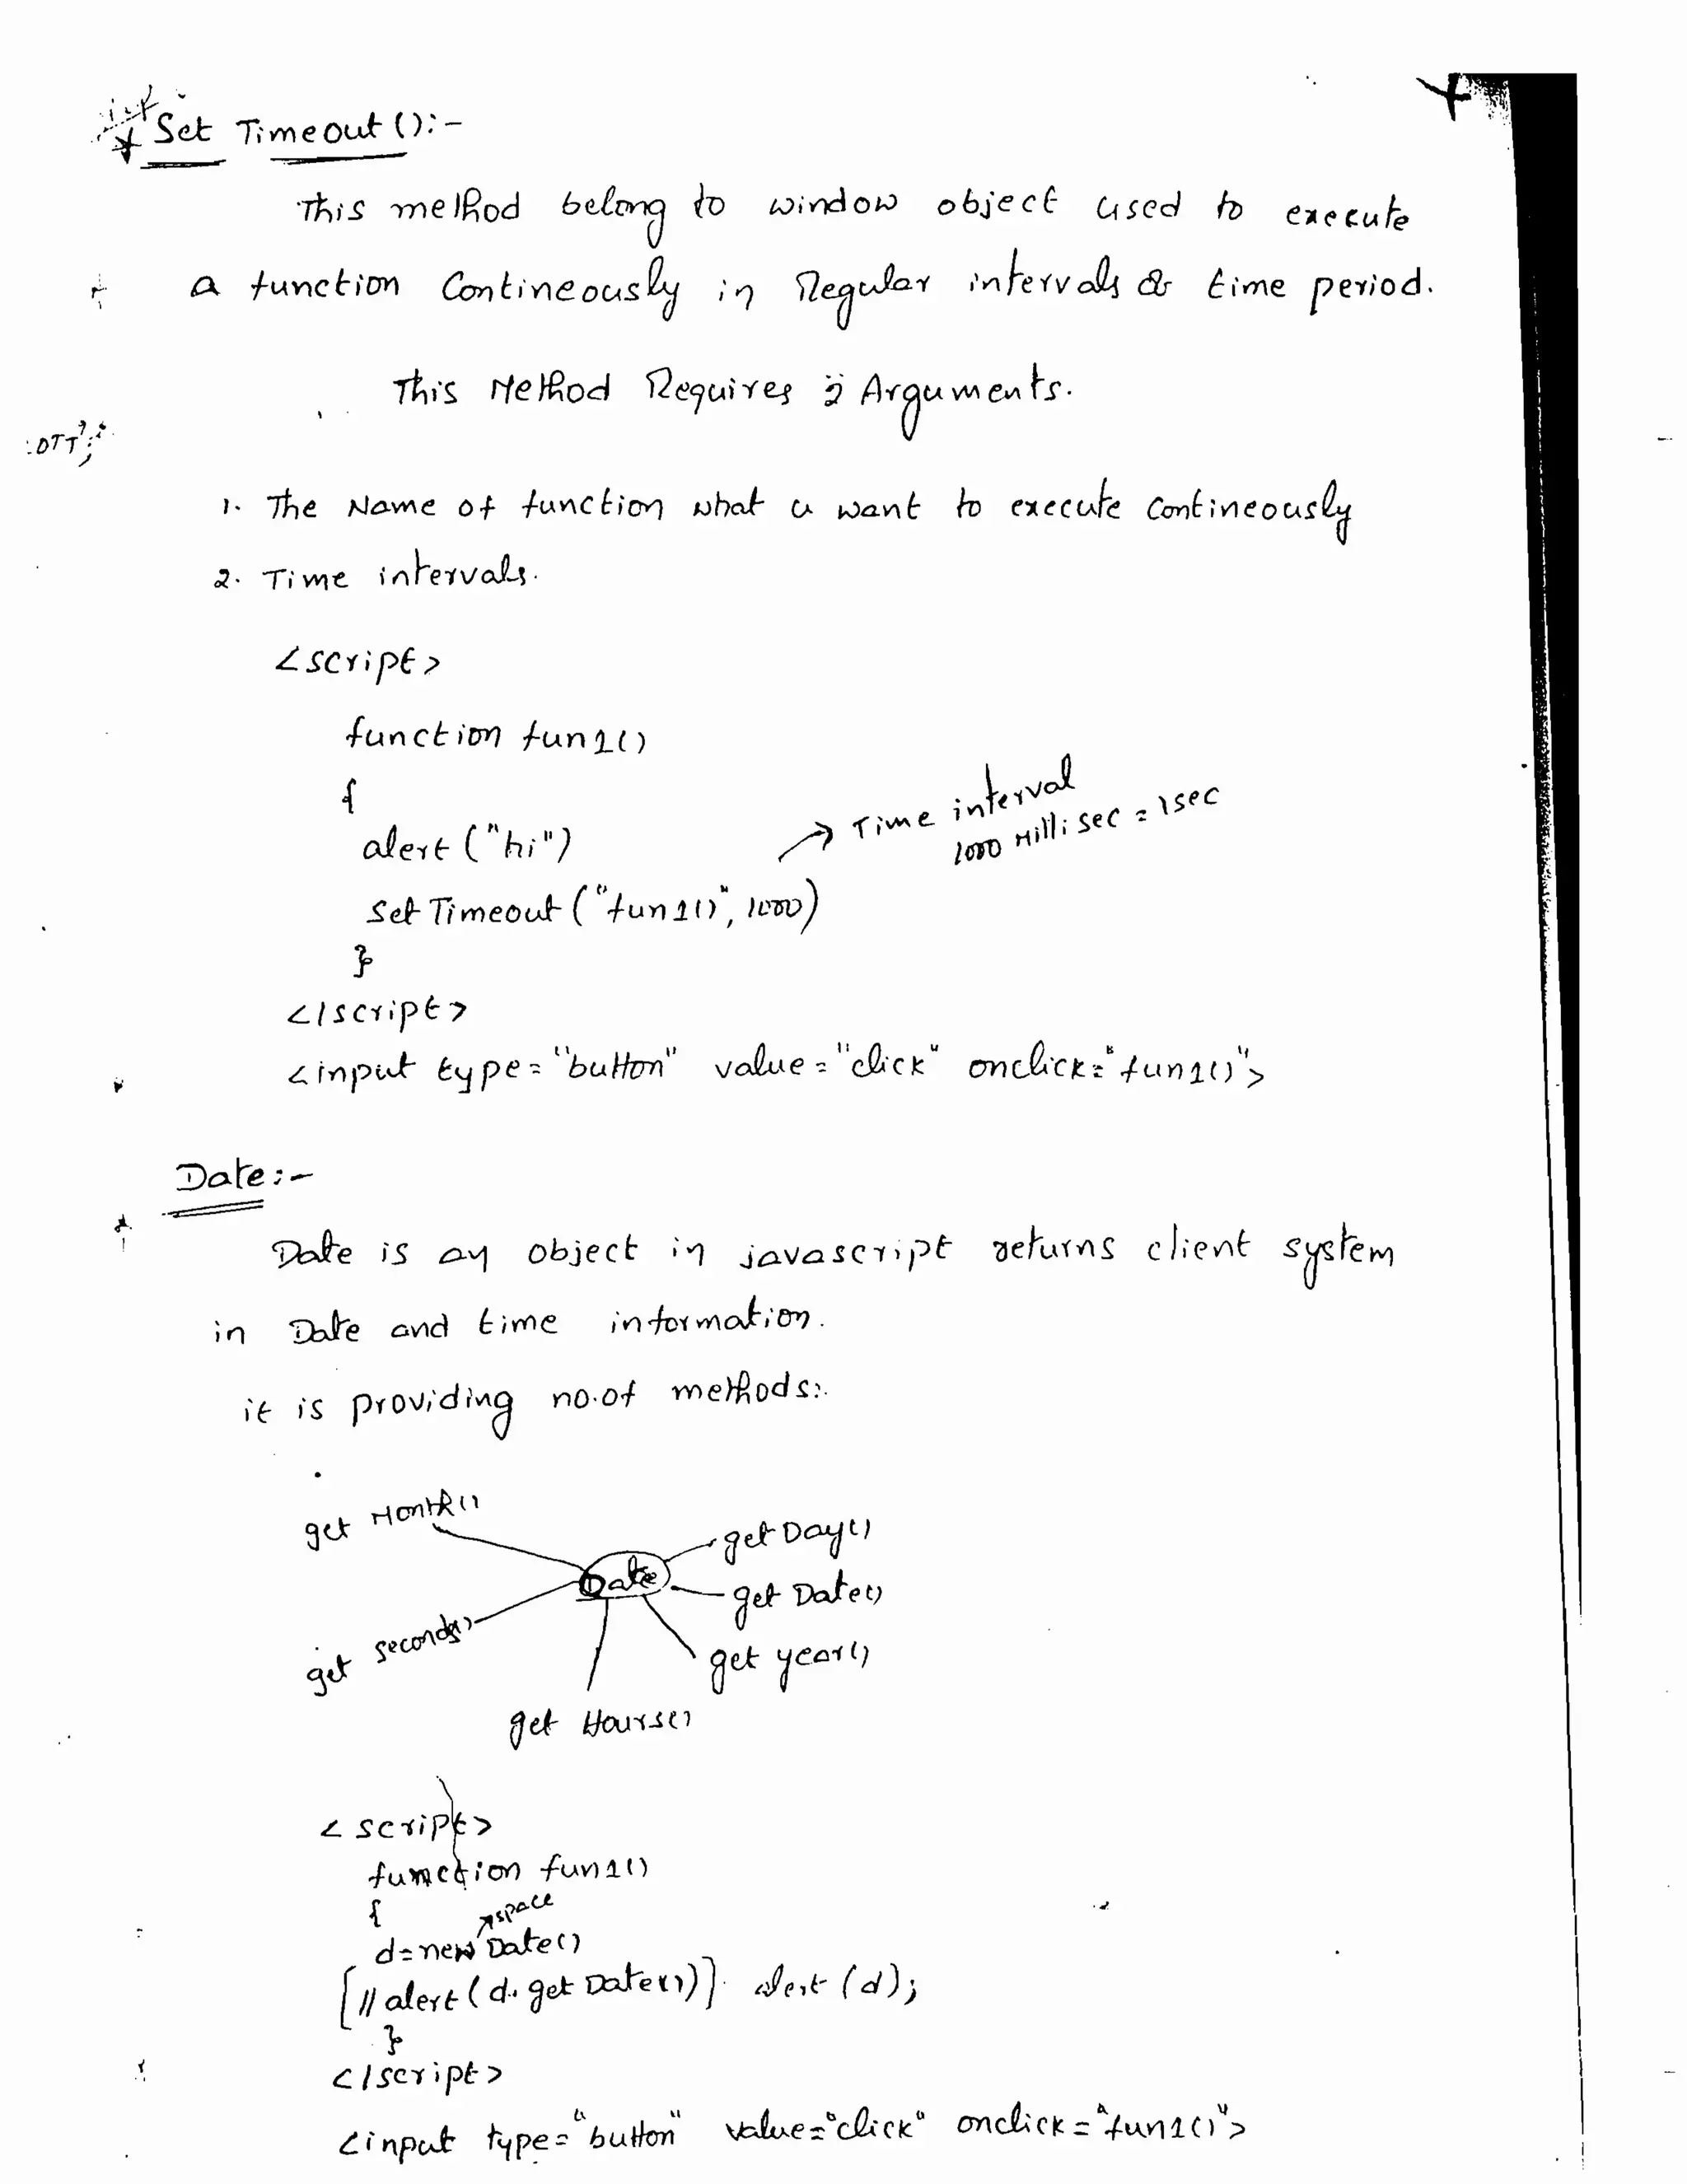 Set Timeout():-
This method belong to window object used to execute
a function Contineously in Regular intervals or time period.
This Method Requires 2 Arguments.
1. The Name of function what u want to execute Contineously
2. Time intervals.
<script>
function fun1()
{
alert ("hi")
→ Time interval
1000 Milli sec = 1sec
Set Timeout ("fun1()", 1000)
}
</script>
<input type="button" value="click" onclick="fun1()">
Date:-
Date is an object in javascript returns client system
in Date and time information.
it is providing no.of methods:.
get Month()
get Day()
Date
get Date()
get seconds()
get year()
get Hours()
<script>
function fun1()
{
space
d=new Date()
[// alert(d.get Date())] alert (d);
}
</script>
<input type="button" value="click" onclick="fun1()">